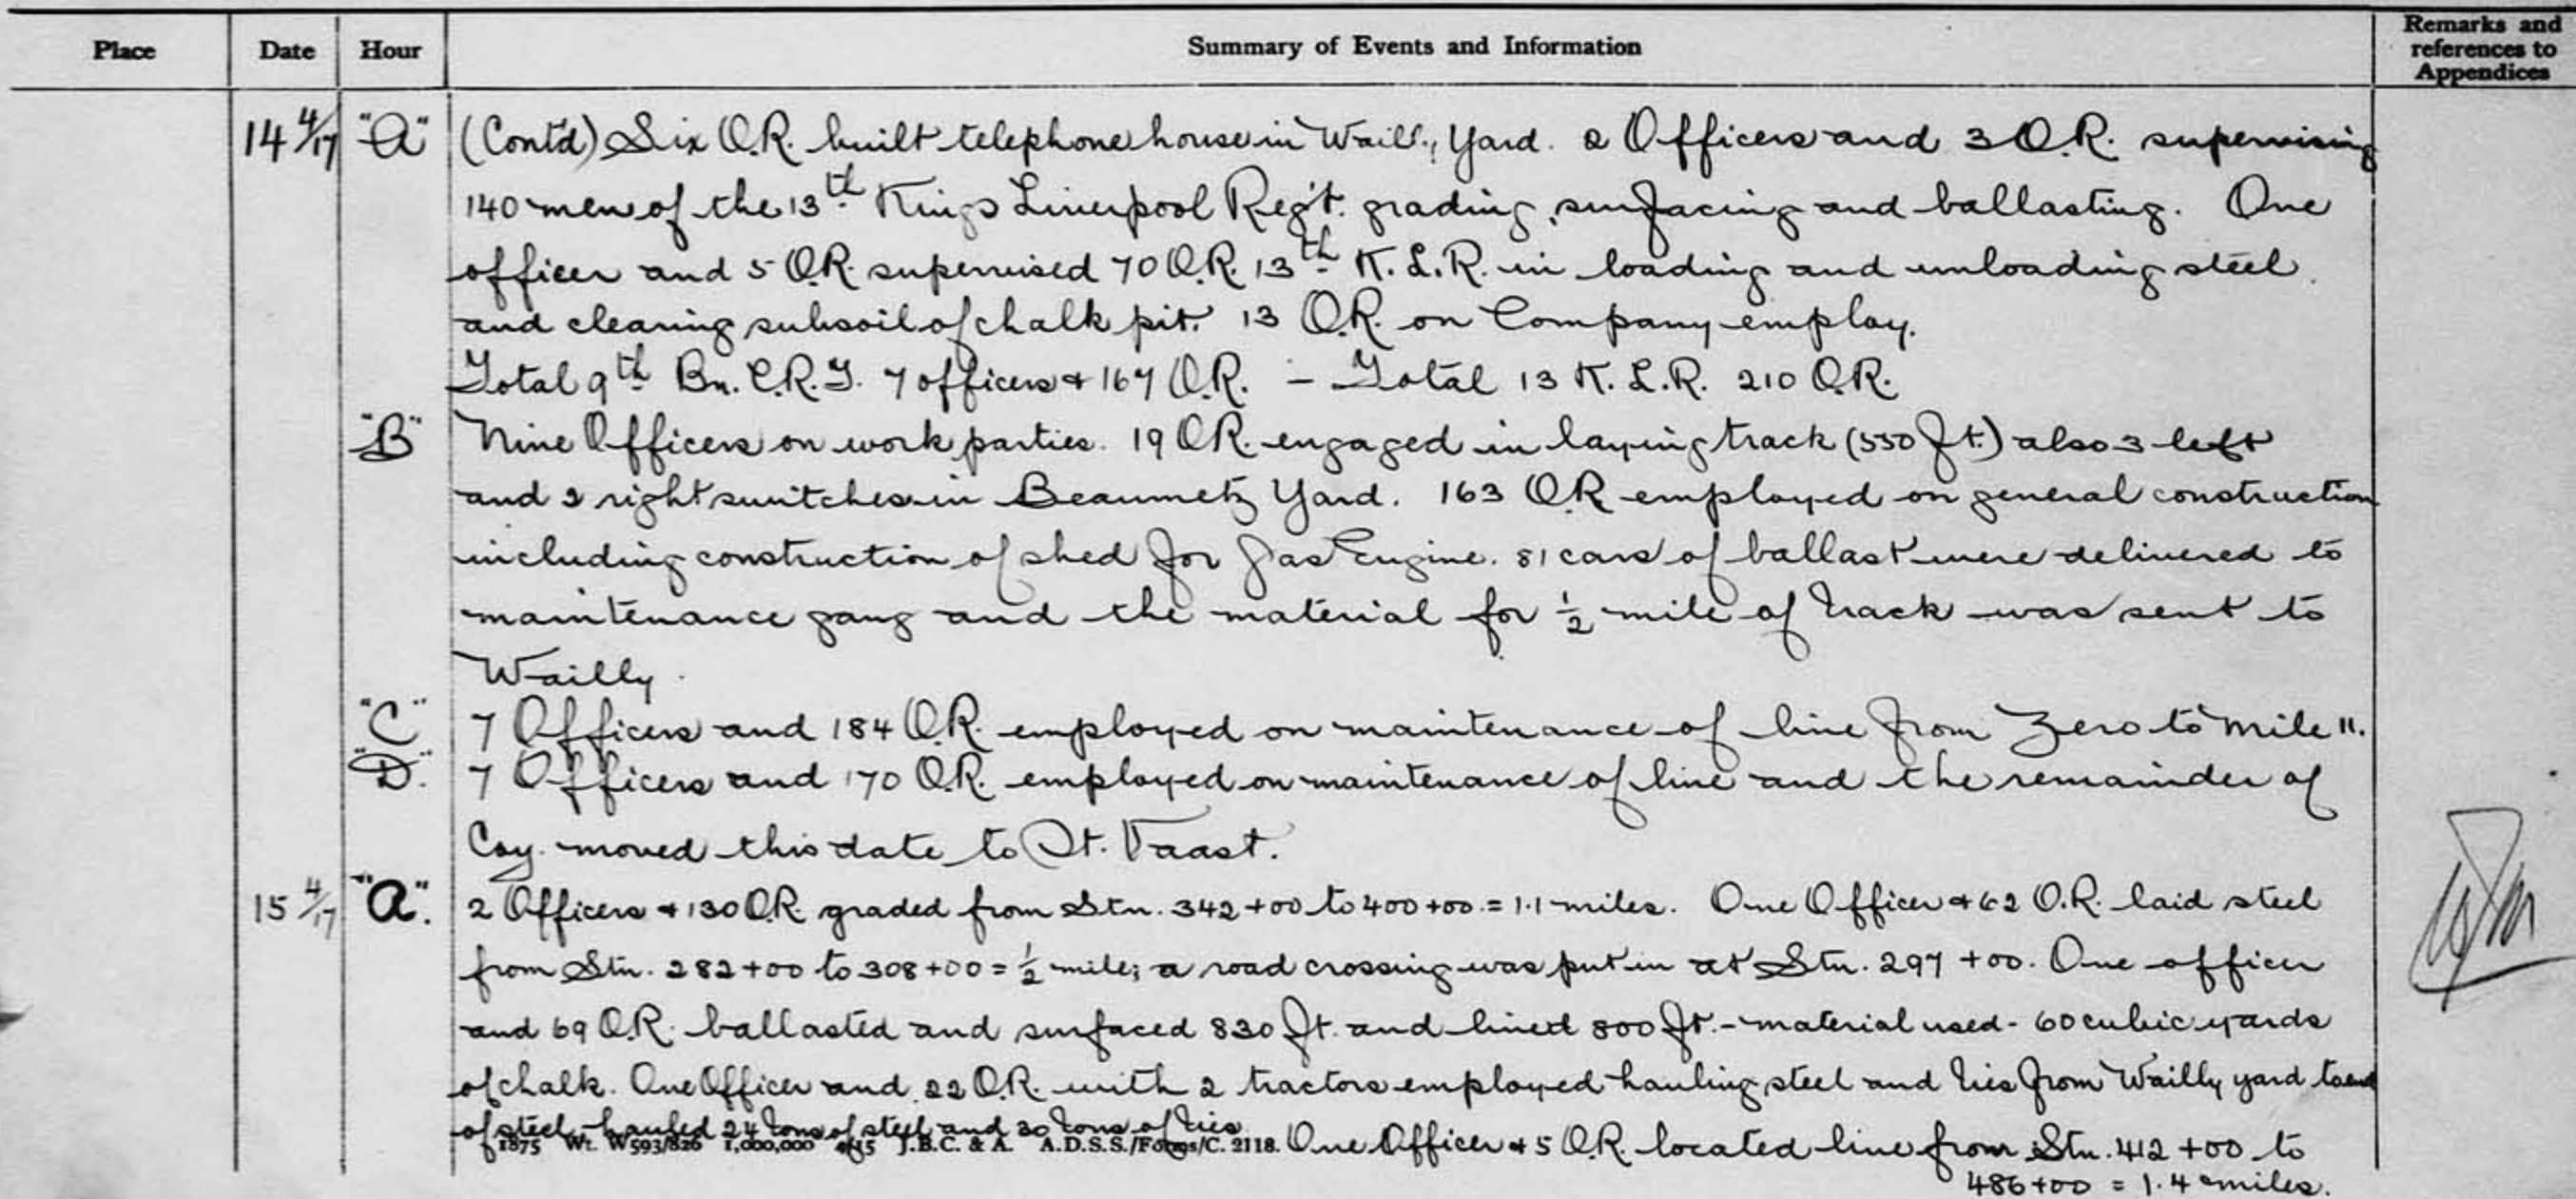 Place Date Hour Summary of Events and Information Remarks and references to Appendices
14 4/17 "A" (Contd) Six O.R. built telephone house in Wailly Yard. 2 Officers and 3 O.R. supervising
140 men of the 13th Kings Liverpool Reg't. grading, surfacing and ballasting. One
officer and 5 O.R. supervised 70 O.R. 13th K.L.R. in loading and unloading steel
and clearing subsoil of chalk pit. 13 O.R. on Company employ.
Total 9th Bn. C.R.T. 7 officers + 167 O.R. - Total 13 K.L.R. 210 O.R.
"B" Nine Officers on work parties. 19 O.R. engaged in laying track (550 ft.) also 3 left
and 2 right switches in Beaumetz Yard. 163 O.R. employed on general construction
including construction of shed for Gas Engine. 81 cars of ballast were delivered to
maintenance gang and the material for ½ mile of track was sent to
Wailly.
"C" 7 Officers and 184 O.R. employed on maintenance of line from Zero to Mile 11.
"D". 7 Officers and 170 O.R. employed on maintenance of line and the remainder of
Coy. moved this date to St. Vaast.
15 4/17 "A". 2 Officers + 130 O.R. graded from Stn. 342+00 to 400+00 = 1.1 miles. One Officer + 62 O.R. laid steel
from Stn. 282+00 to 308+00 = ½ mile; a road crossing was put in at Stn. 297+00. One officer
and 69 O.R. ballasted and surfaced 830 ft. and lined 800 ft. - material used - 60 cubic yards
of chalk. One Officer and 22 O.R. with 2 tractors employed hauling steel and ties from Wailly yard to end
of steel - hauled 24 tons of steel and 30 tons of ties. One Officer + 5 O.R. located line from Stn. 412+00 to
1875 Wt. W593/826 1,000,000 4/15 J.B.C. & A. A.D.S.S./Forms/C. 2118.
486+00 = 1.4 miles.